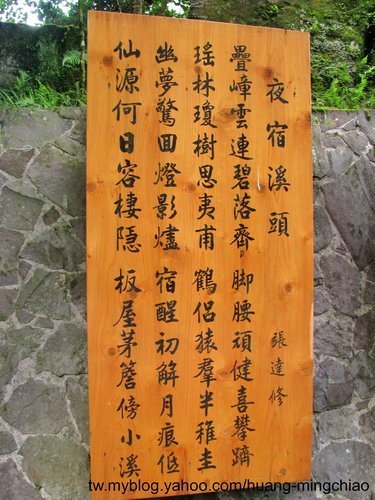 夜宿溪頭 張達修
疊嶂雲連碧落齊 脚腰頑健喜攀躋
瑤林瓊樹思夷甫 鶴侶猿羣半稚圭
幽夢驚回燈影燼 宿醒初解月痕低
仙源何日容棲隱 板屋茅簷傍小溪
tw.myblog.yahoo.com/huang-mingchiao